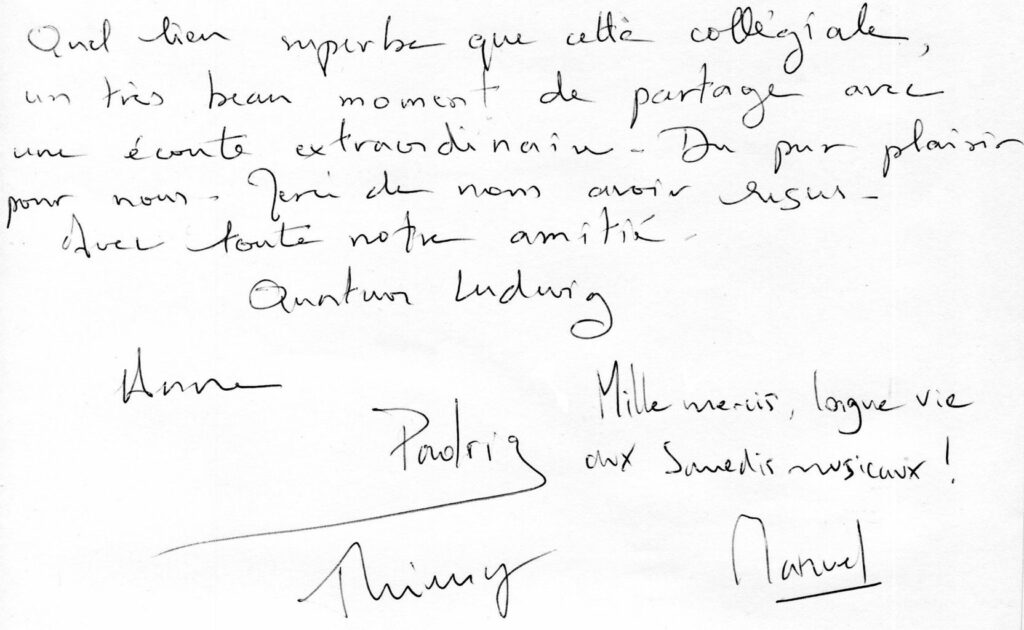 Quel lieu superbe que cette collégiale,
un très beau moment de partage avec
une écoute extraordinaire - Du pur plaisir
pour nous - Merci de nous avoir reçus -
Avec toute notre amitié -
Quatuor Ludwig
Anne
Padrig
Mille mercis, longue vie
aux Samedis musicaux !
Thierry
Manuel